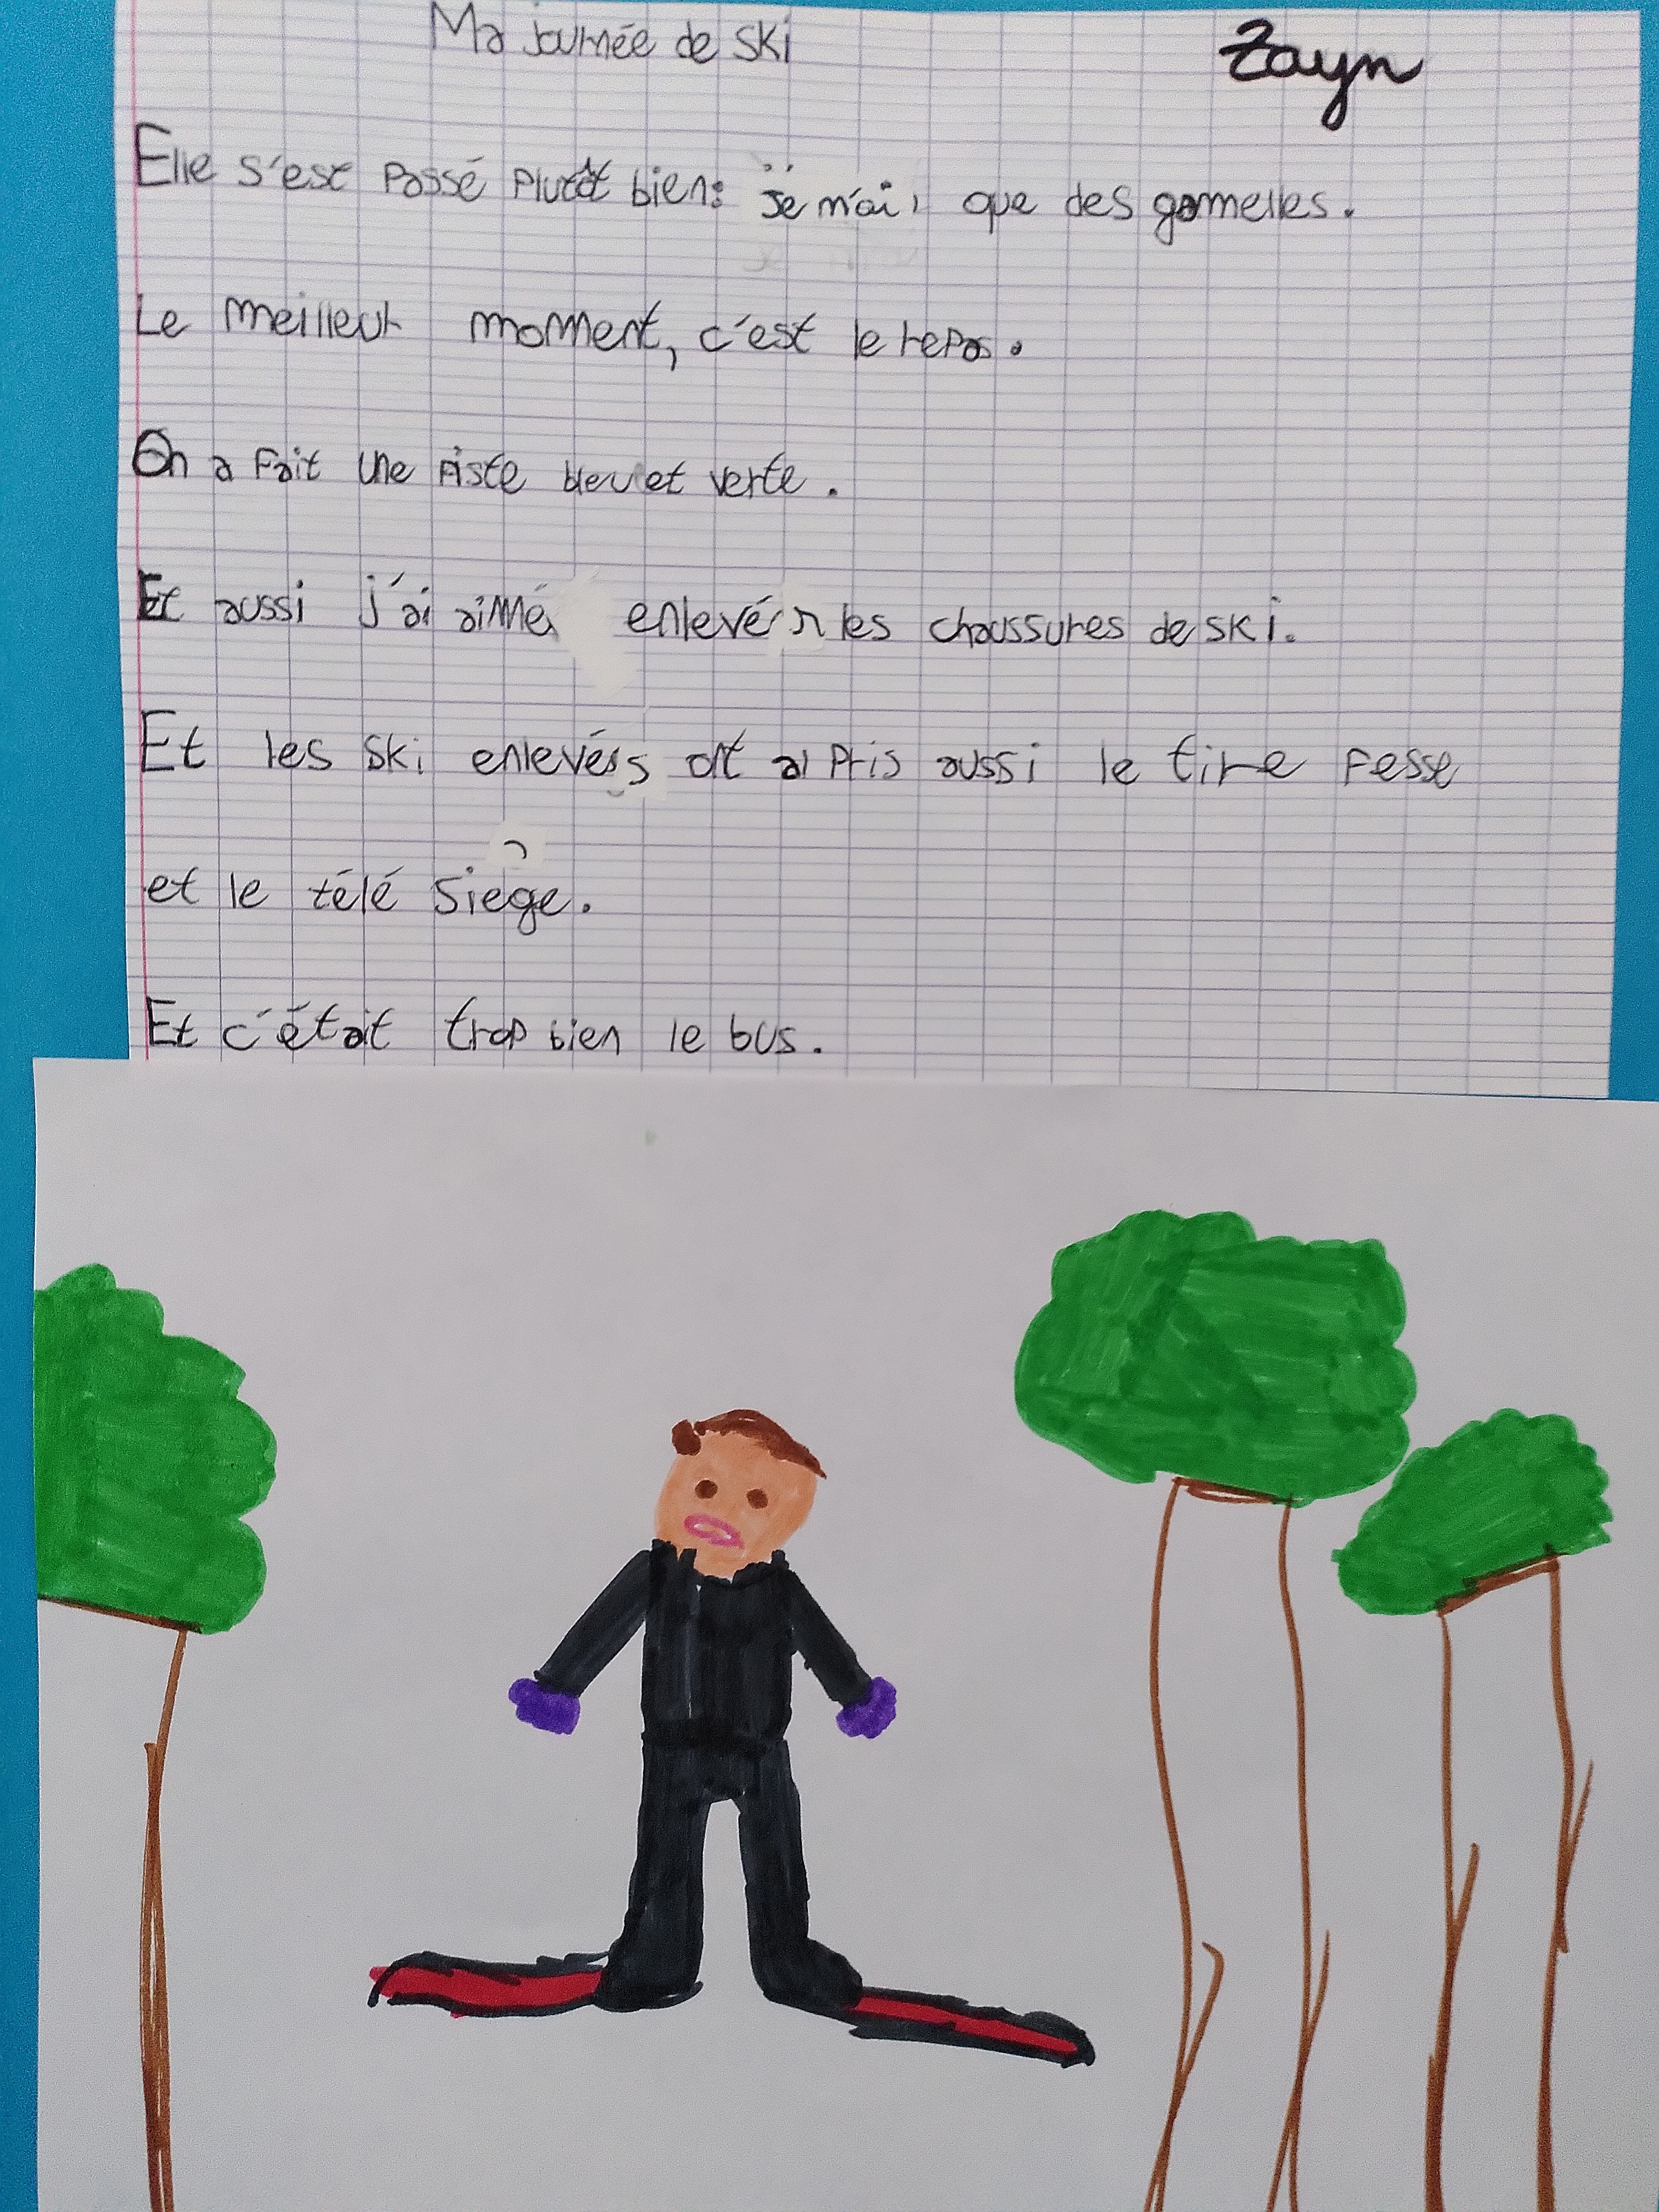 Ma journée de ski
Zayn
Elle s'est passé plutôt bien: je n'ai que des gamelles.
Le meilleur moment, c'est le repas.
On a fait une piste bleu et verte.
Et aussi j'ai aimé enlevér les chaussures de ski.
Et les ski enlevés ont a pris aussi le tire fesse
et le télé siege.
Et c'était trop bien le bus.